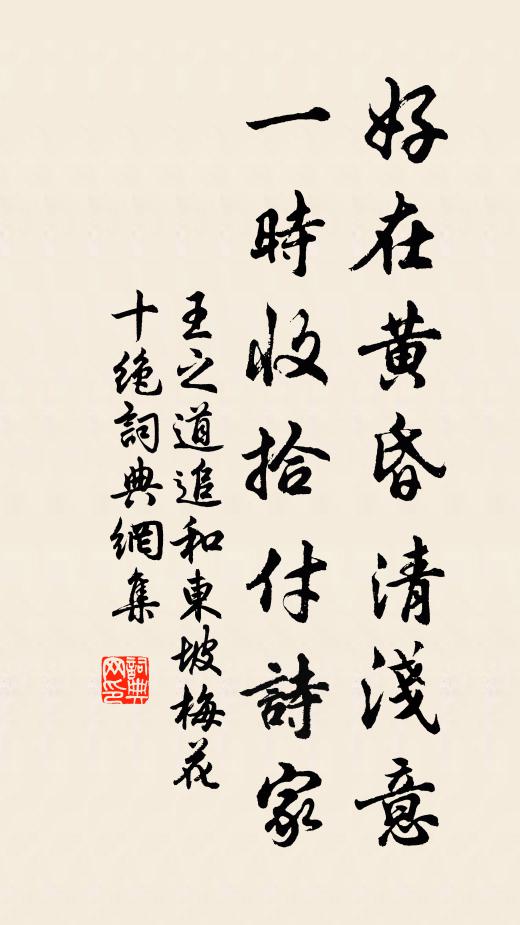 好在黄昏清淺意
一時收拾付詩家
王之道追和東坡梅花
十絶詞典網集
詞典网印